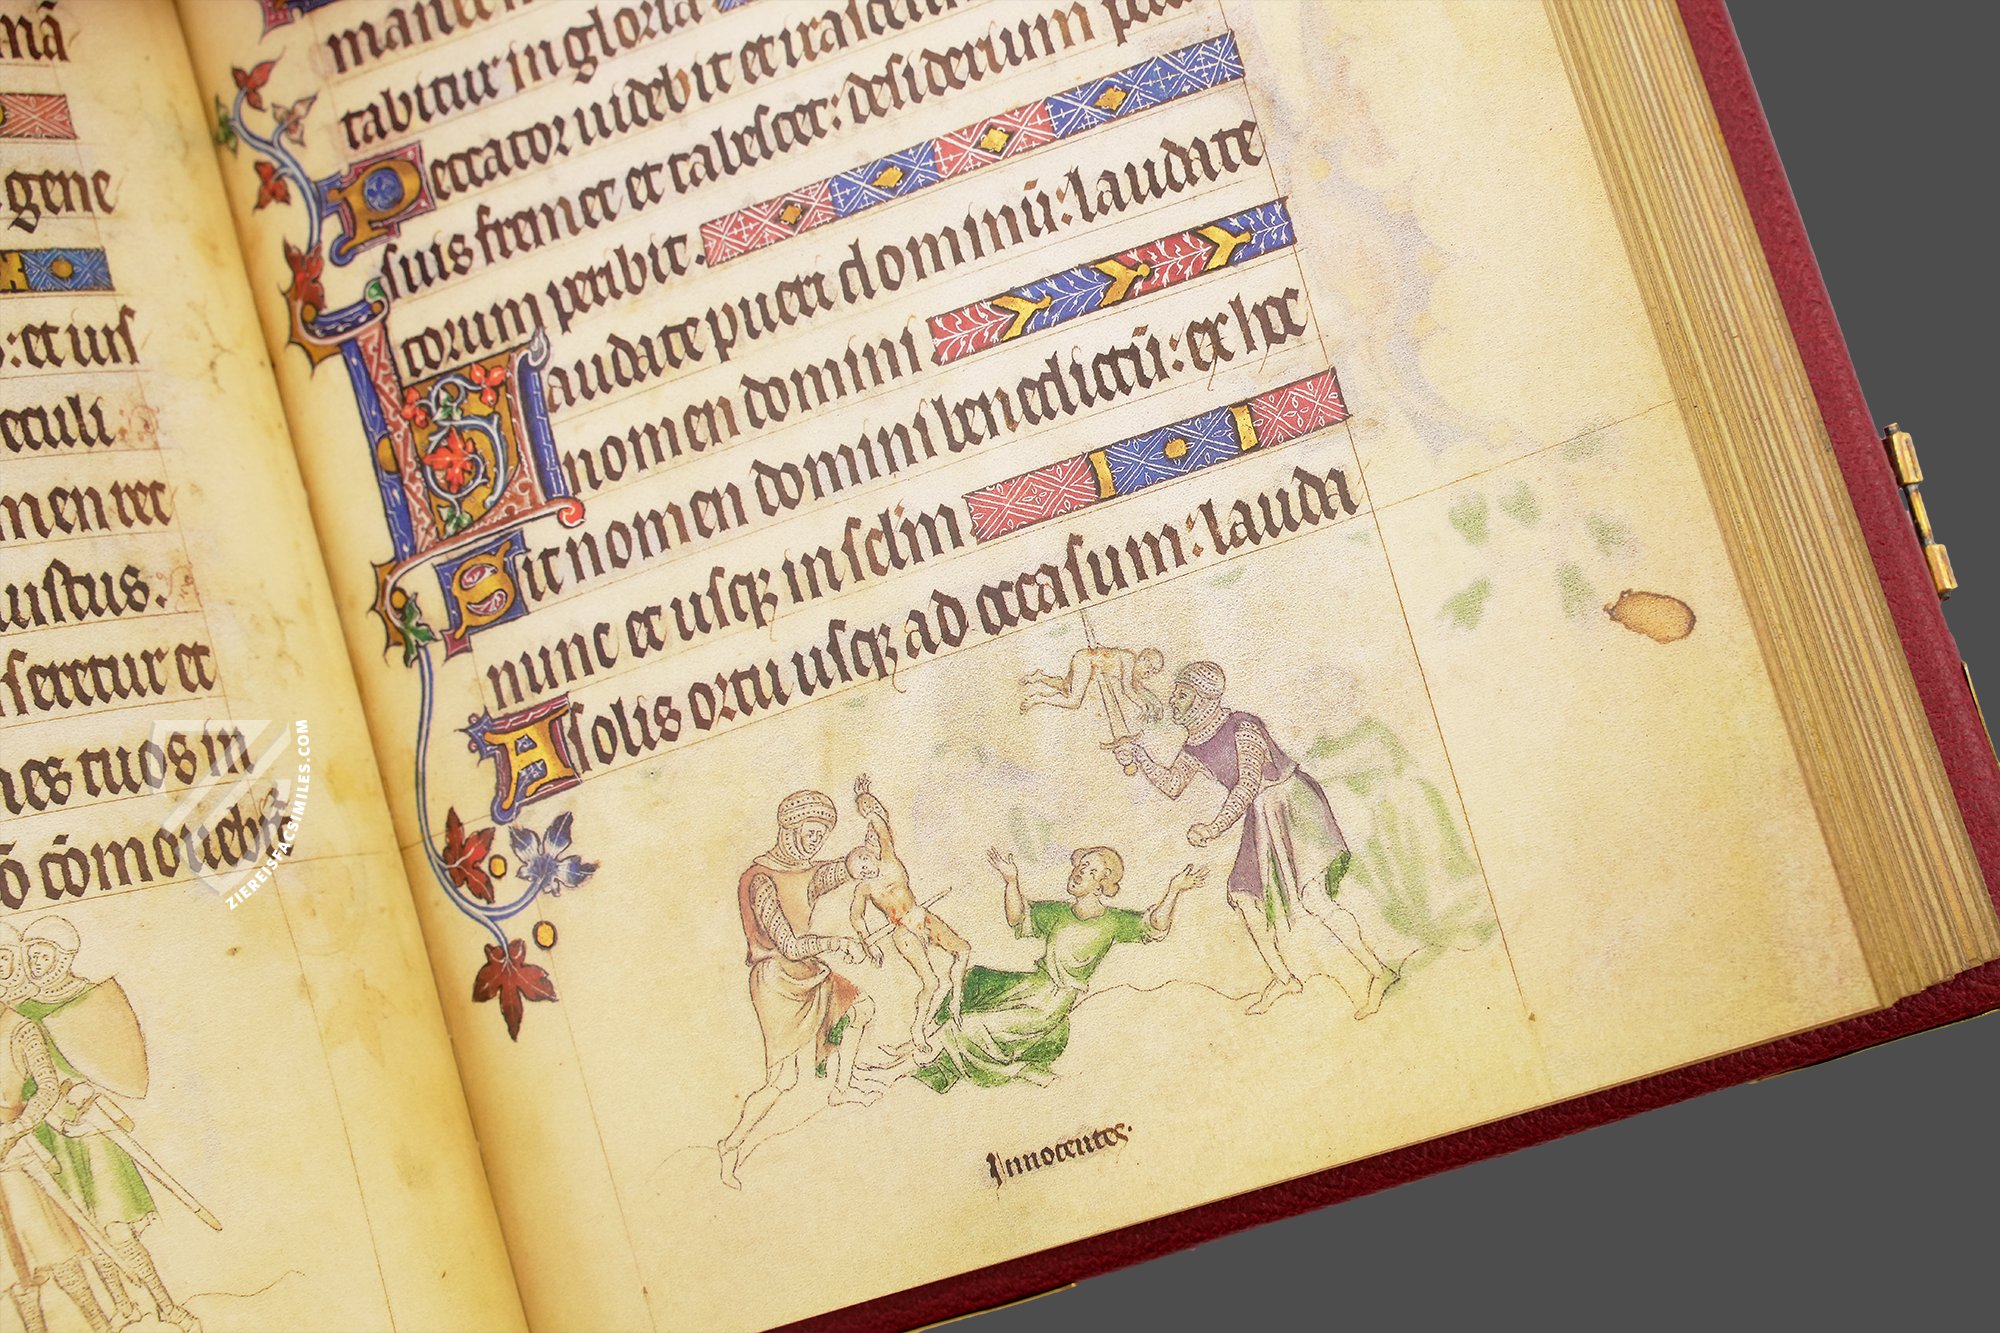 nā
gene
:et iusi
eculi
men rec
iustus.
seretur et
nes tuos in
cōmouebit
tabitur in gloria
Peccator uidebit et irascetur
suis fremet et tabescet: desiderium pecca
torum peribit.
Laudate pueri dominū: laudate
nomen domini
Sit nomen domini benedictū: ex hoc
nunc et usq; in sclm
A solis ortu usq; ad occasum: lauda
Innocentes.
ZIEREISFACSIMILES.COM